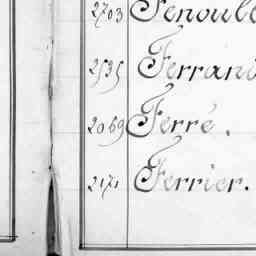 2703 Fenouil
2535 Ferrand
2069 Ferré.
2171 Ferrier.